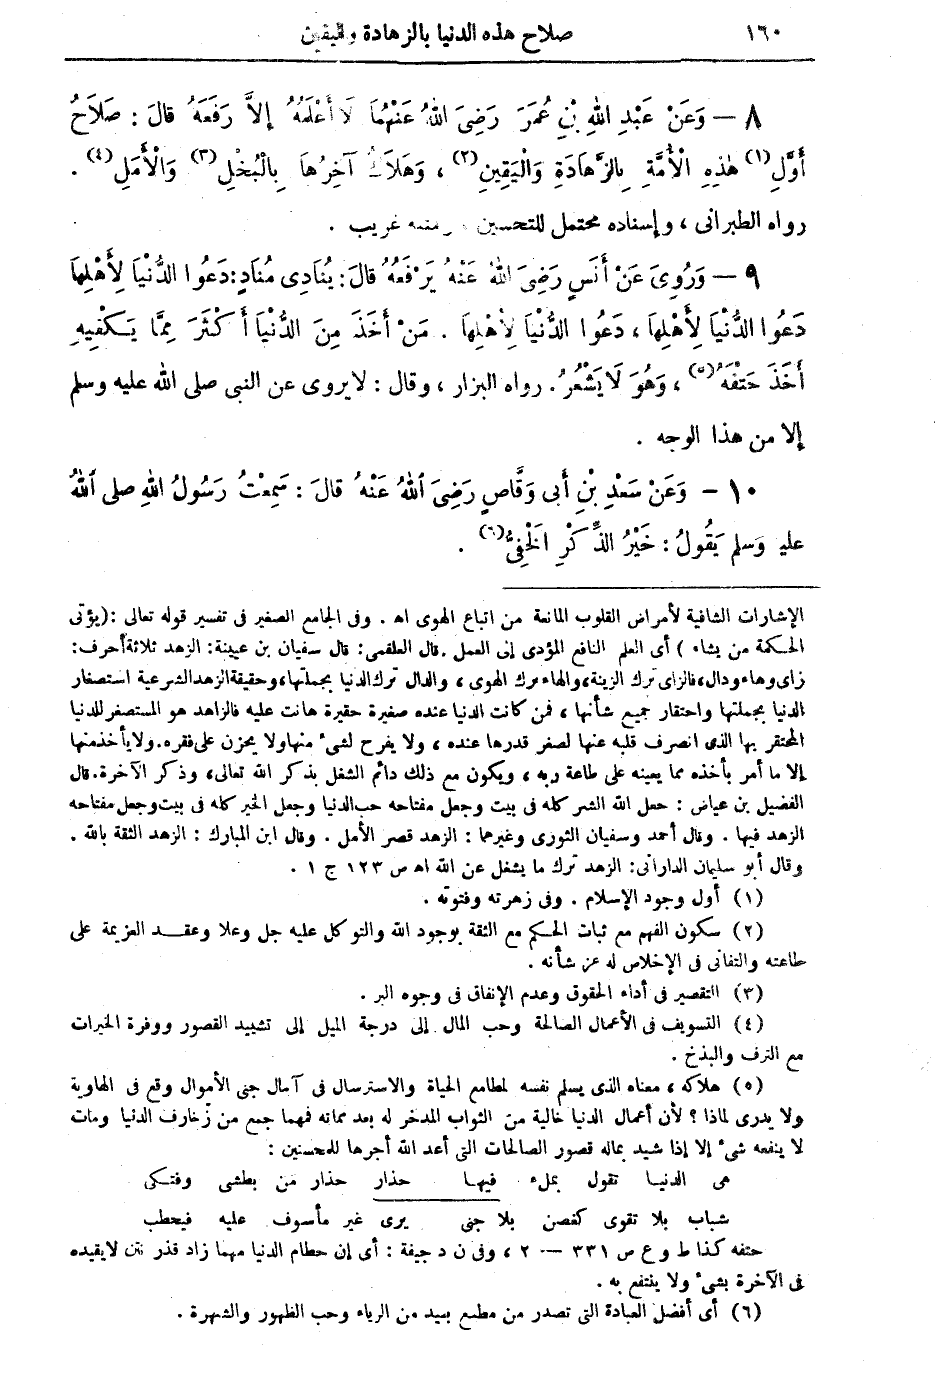 ١٦٠ صلاح هذه الدنيا بالزهادة واليقين
٨ — وَعَنْ عَبْدِ اللهِ بْنِ عُمَرَ رَضِىَ اللهُ عَنْهُمَا لَا أَعْلَمُهُ إِلاَّ رَفَعَهُ قالَ : صَلَاحُ
أَوَّلِ (١) هٰذِهِ الْأُمَّةِ بِالزَّهَادَةِ وَالْيَقِينِ (٢) ، وَهَلَاكُ آخِرُهَا بِالْبُخْلِ (٣) وَالْأَمَلِ (٤) .
رواه الطبرانى ، وإسناده محتمل للتحسين ومتنه غريب .
٩ — وَرُوِىَ عَنْ أَنَسٍ رَضِىَ اللهُ عَنْهُ يَرْفَعُهُ قالَ : يُنَادِى مُنَادٍ : دَعُوا الدُّنْيَا لِأَهْلِهَا
دَعُوا الدُّنْيَا لِأَهْلِهَا ، دَعُوا الدُّنْيَا لِأَهْلِهَا . مَنْ أَخَذَ مِنَ الدُّنْيَا أَكْثَرَ مِمَّا يَكْفِيهِ
أَخَذَ حَتْفَهُ (٥) ، وَهُوَ لَا يَشْعُرُ . رواه البزار ، وقال : لا يروى عن النبى صلى الله عليه وسلم
إلا من هذا الوجه .
١٠ - وَعَنْ سَعْدِ بْنِ أَبى وَقَّاصٍ رَضِىَ اللهُ عَنْهُ قالَ : سَمِعْتُ رَسُولُ اللهِ صلى اللهُ
عليه وَسلم يَقُولُ : خَيْرُ الذِّكْرِ الْخَفِىُّ (٦) .
الإشارات الشافية لأمراض القلوب المانعة من اتباع الهوى اه . وفى الجامع الصغير فى تفسير قوله تعالى : (يؤتى
الحكمة من يشاء ) أى العلم النافع المؤدى إلى العمل . قال العلقمى : قال سفيان بن عيينة : الزهد ثلاثة أحرف :
زاى وهاء ودال ، فالزاى ترك الزينة ، والهاء ترك الهوى ، والدال ترك الدنيا بجملتها ، وحقيقة الزهد الشرعية استصغار
الدنيا بجملتها واحتقار جميع شأنها ، فمن كانت الدنيا عنده صغيرة حقيرة هانت عليه فالزاهد هو المستصغر للدنيا
المحتقر بها الذى انصرف قلبه عنها لصغر قدرها عنده ، ولا يفرح لشىء منها ولا يحزن على فقره . ولا يأخذ منها
إلا ما أمر بأخذه مما يعينه على طاعة ربه ، ويكون مع ذلك دائم الشغل بذكر الله تعالى ، وذكر الآخرة . قال
الفضيل بن عياض : جعل الله الشر كله فى بيت وجعل مفتاحه حب الدنيا وجعل الخير كله فى بيت وجعل مفتاحه
الزهد فيها . وقال أحمد وسفيان الثورى وغيرهما : الزهد قصر الأمل . وقال ابن المبارك : الزهد الثقة بالله .
وقال أبو سليمان الدارانى : الزهد ترك ما يشغل عن الله اه ص ١٢٣ ج ١ .
(١) أول وجود الإسلام . وفى زهرته وفتوته .
(٢) سكون الفهم مع ثبات الحكم مع الثقة بوجود الله والتوكل عليه جل وعلا وعقد العزيمة على
طاعته والتفانى فى الإخلاص له عز شأنه .
(٣) التقصير فى أداء الحقوق وعدم الإنفاق فى وجوه البر .
(٤) التسويف فى الأعمال الصالحة وحب المال إلى درجة الميل إلى تشييد القصور ووفرة الخيرات
مع الترف والبذخ .
(٥) هلاكه ، معناه الذى يسلم نفسه لمطامع الحياة والاسترسال فى آمال جنى الأموال وقع فى الهاوية
ولا يدرى لماذا ؟ لأن أعمال الدنيا خالية من الثواب المدخر له بعد مماته فمهما جمع من زخارف الدنيا ومات
لا ينفعه شىء إلا إذا شيد بماله قصور الصالحات التى أعد الله أجرها للمحسنين :
هى الدنيا تقول بملء فيها حذار حذار من بطشى وفتكى
شباب بلا تقوى كغصن بلا جنى يرى غير مأسوف عليه فيحطب
حتفه كذا ط و ع ص ٣٣١ — ٢ ، وفى ن د جيفة : أى إن حطام الدنيا مهما زاد قذر نتن لا يفيده
فى الآخرة بشىء ولا ينتفع به .
(٦) أى أفضل العبادة التى تصدر من مطيع بعيد من الرياء وحب الظهور والشهرة .